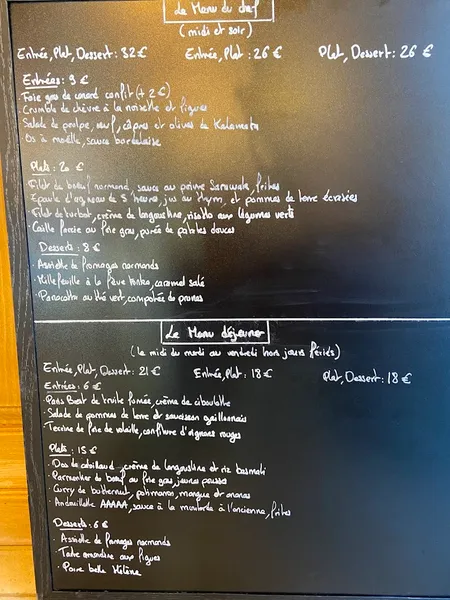 Le Menu du chef
(midi et soir)
Entrée, Plat, Dessert : 32 € Entrée, Plat : 26 € Plat, Dessert : 26 €
Entrées : 9 €
Foie gras de canard confit (+ 2 €)
Crumble de chèvre à la noisette et figues
Salade de poulpe, oeuf, câpres et olives de Kalamata
Os à moëlle, sauce bordelaise
Plats : 20 €
Filet de boeuf normand, sauce au poivre Sarawak, frites
Epaule d'agneau de 5 heures, jus au thym, et pommes de terre écrasées
· Filet de turbot, crème de langoustine, risotto aux légumes verts
· Caille farcie au foie gras, purée de patates douces
Desserts : 8 €
· Assiette de fromages normands
· Millefeuille à la fève tonka, caramel salé
· Panacotta au thé vert, compotée de prunes
Le Menu déjeuner
(le midi du mardi au vendredi hors jours fériés)
Entrée, Plat, Dessert : 21 € Entrée, Plat : 18 € Plat, Dessert : 18 €
Entrées : 6 €
· Pain Bagnat de truite fumée, crème de ciboulette
· Salade de pommes de terre et saucisson gaillonnais
· Terrine de foie de volaille, confiture d'oignons rouges
Plats : 15 €
· Dos de cabillaud, crème de langoustine et riz basmati
· Parmentier de boeuf au foie gras, jeunes pousses
· Curry de butternut, patimarons, mangue et ananas
· Andouillette AAAAA, sauce à la moutarde à l'ancienne, frites
Desserts : 6 €
· Assiette de fromages normands
· Tarte amandine aux figues
· Poire belle Hélène